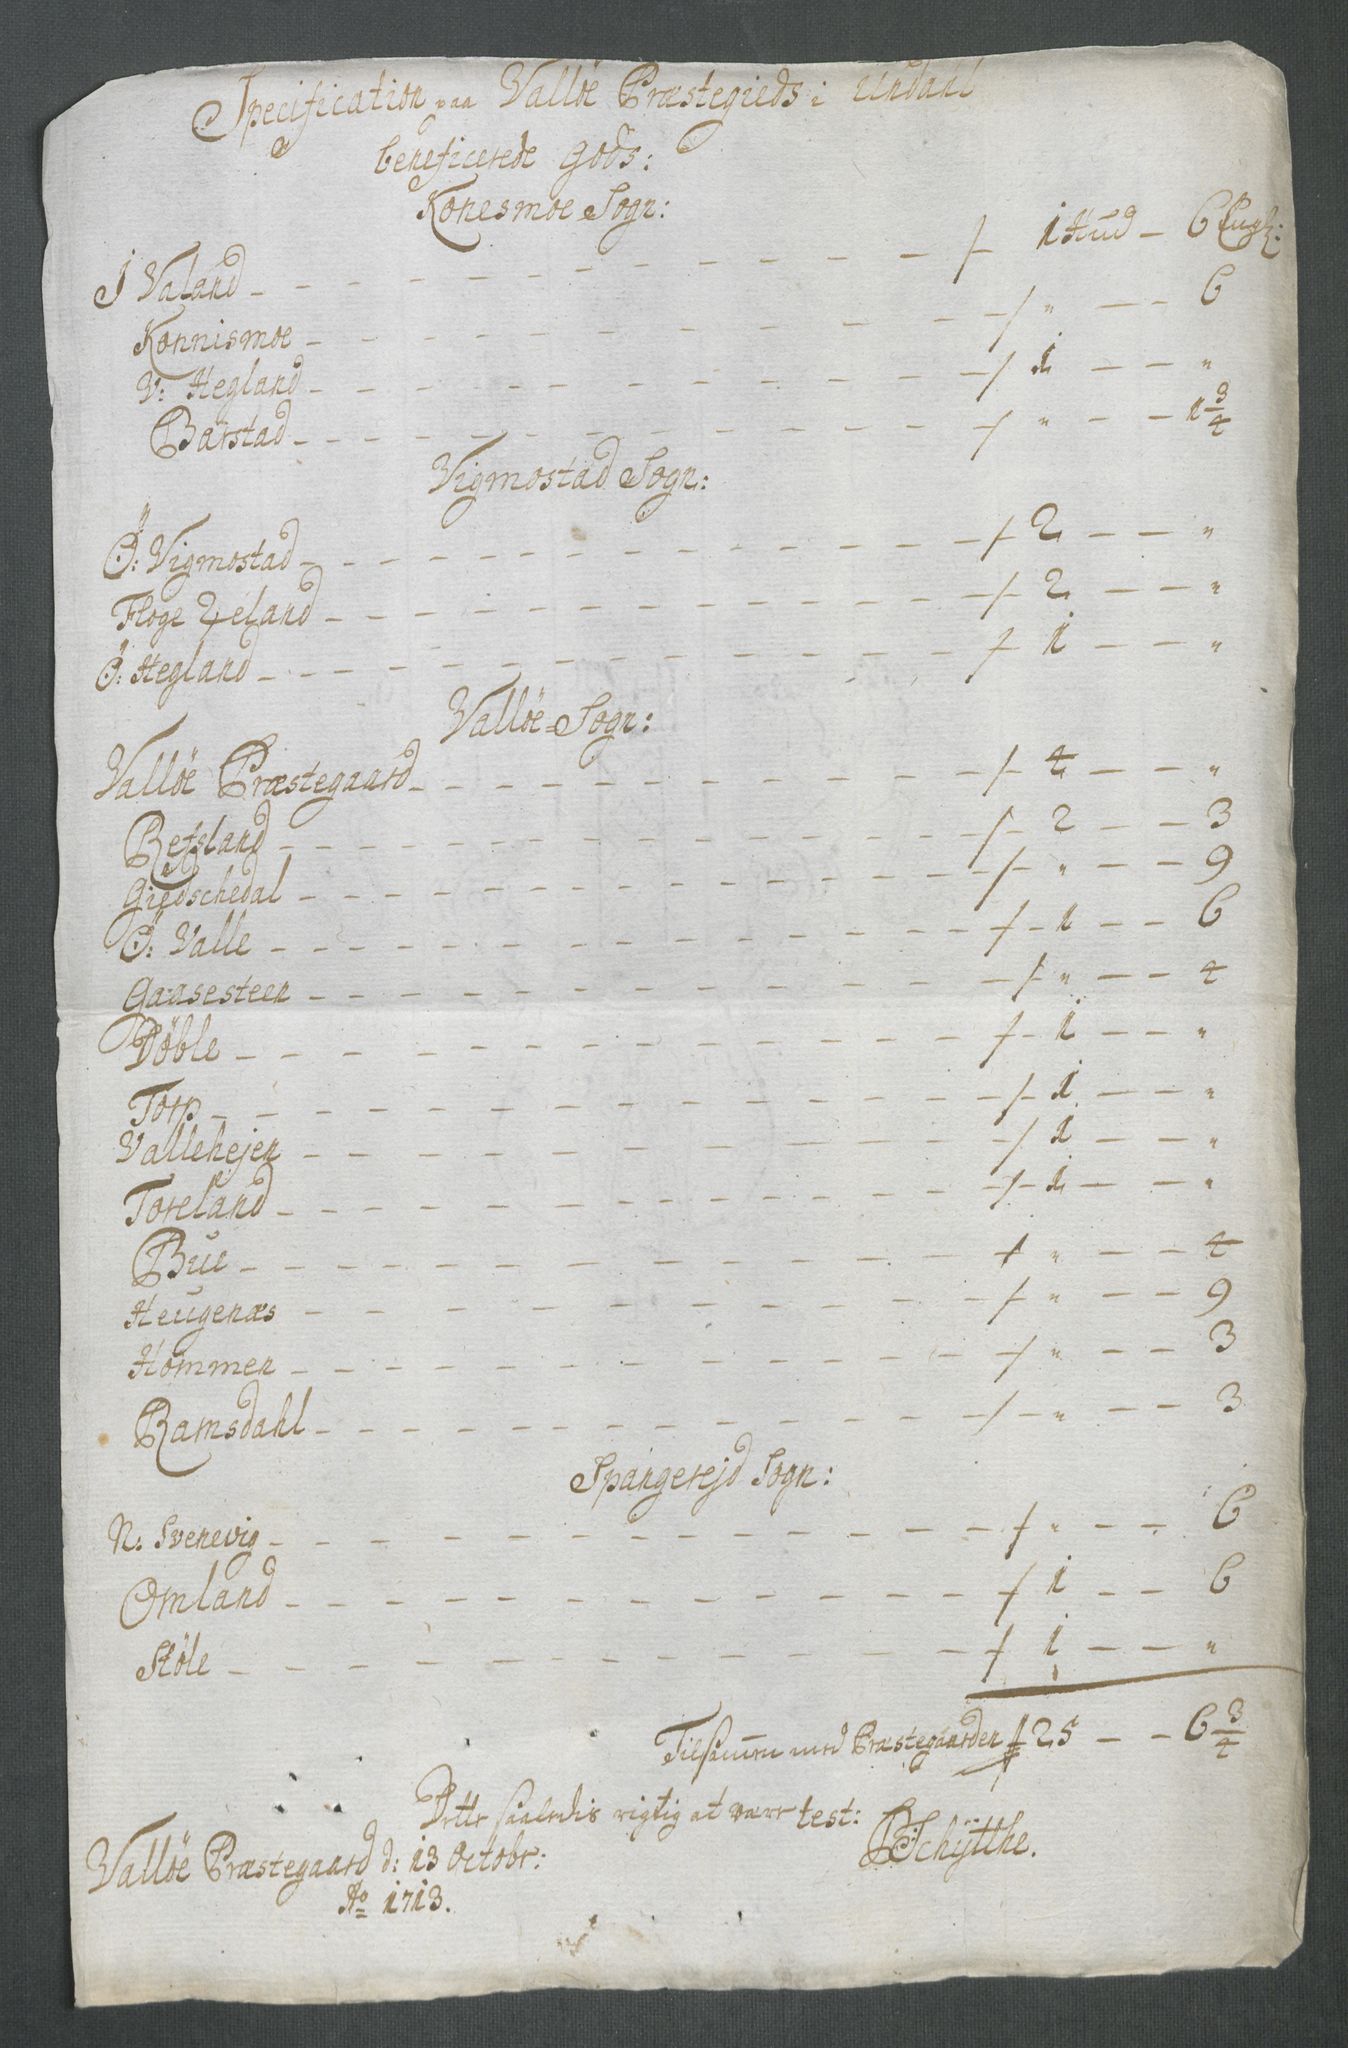 Specification paa Valløe Præstegields i Undahl
beneficerede Gods:
Konesmoe Sogn:
I Valand - 1 Hud - 6 Engl:
Konnismoe - " - 6
V: Hegland - 1 - "
Barstad - " - 1 3/4
Vigmostad Sogn:
Ö: Vigmostad - 2 - "
Floge Z eland - 2 - "
Ö: Hegland - 1 - "
Vallöe Sogn:
Vallöe Præstegaard - 4 - "
Refsland - 2 - 3
Giedschedal - " - 9
Ö: Valle - 1 - 6
Gaasesteen - " - 4
Döble - 1 - "
Torp - 1 - "
Vallehejen - 1 - "
Toreland - 1 - "
Bue - " - 4
Heugenæs - " - 9
Hommen - " - 3
Ramsdahl - " - 3
Spangerejd Sogn:
N: Svenevig - " - 6
Omland - 1 - 6
Stöle - 1 - "
Tilsammen med Præstegaarden 25 - 6 3/4
Dette saaledis rigtig at være test:
Vallöe Præstegaard d: 13 Octobr: Schÿtthe.
Ao 1713.